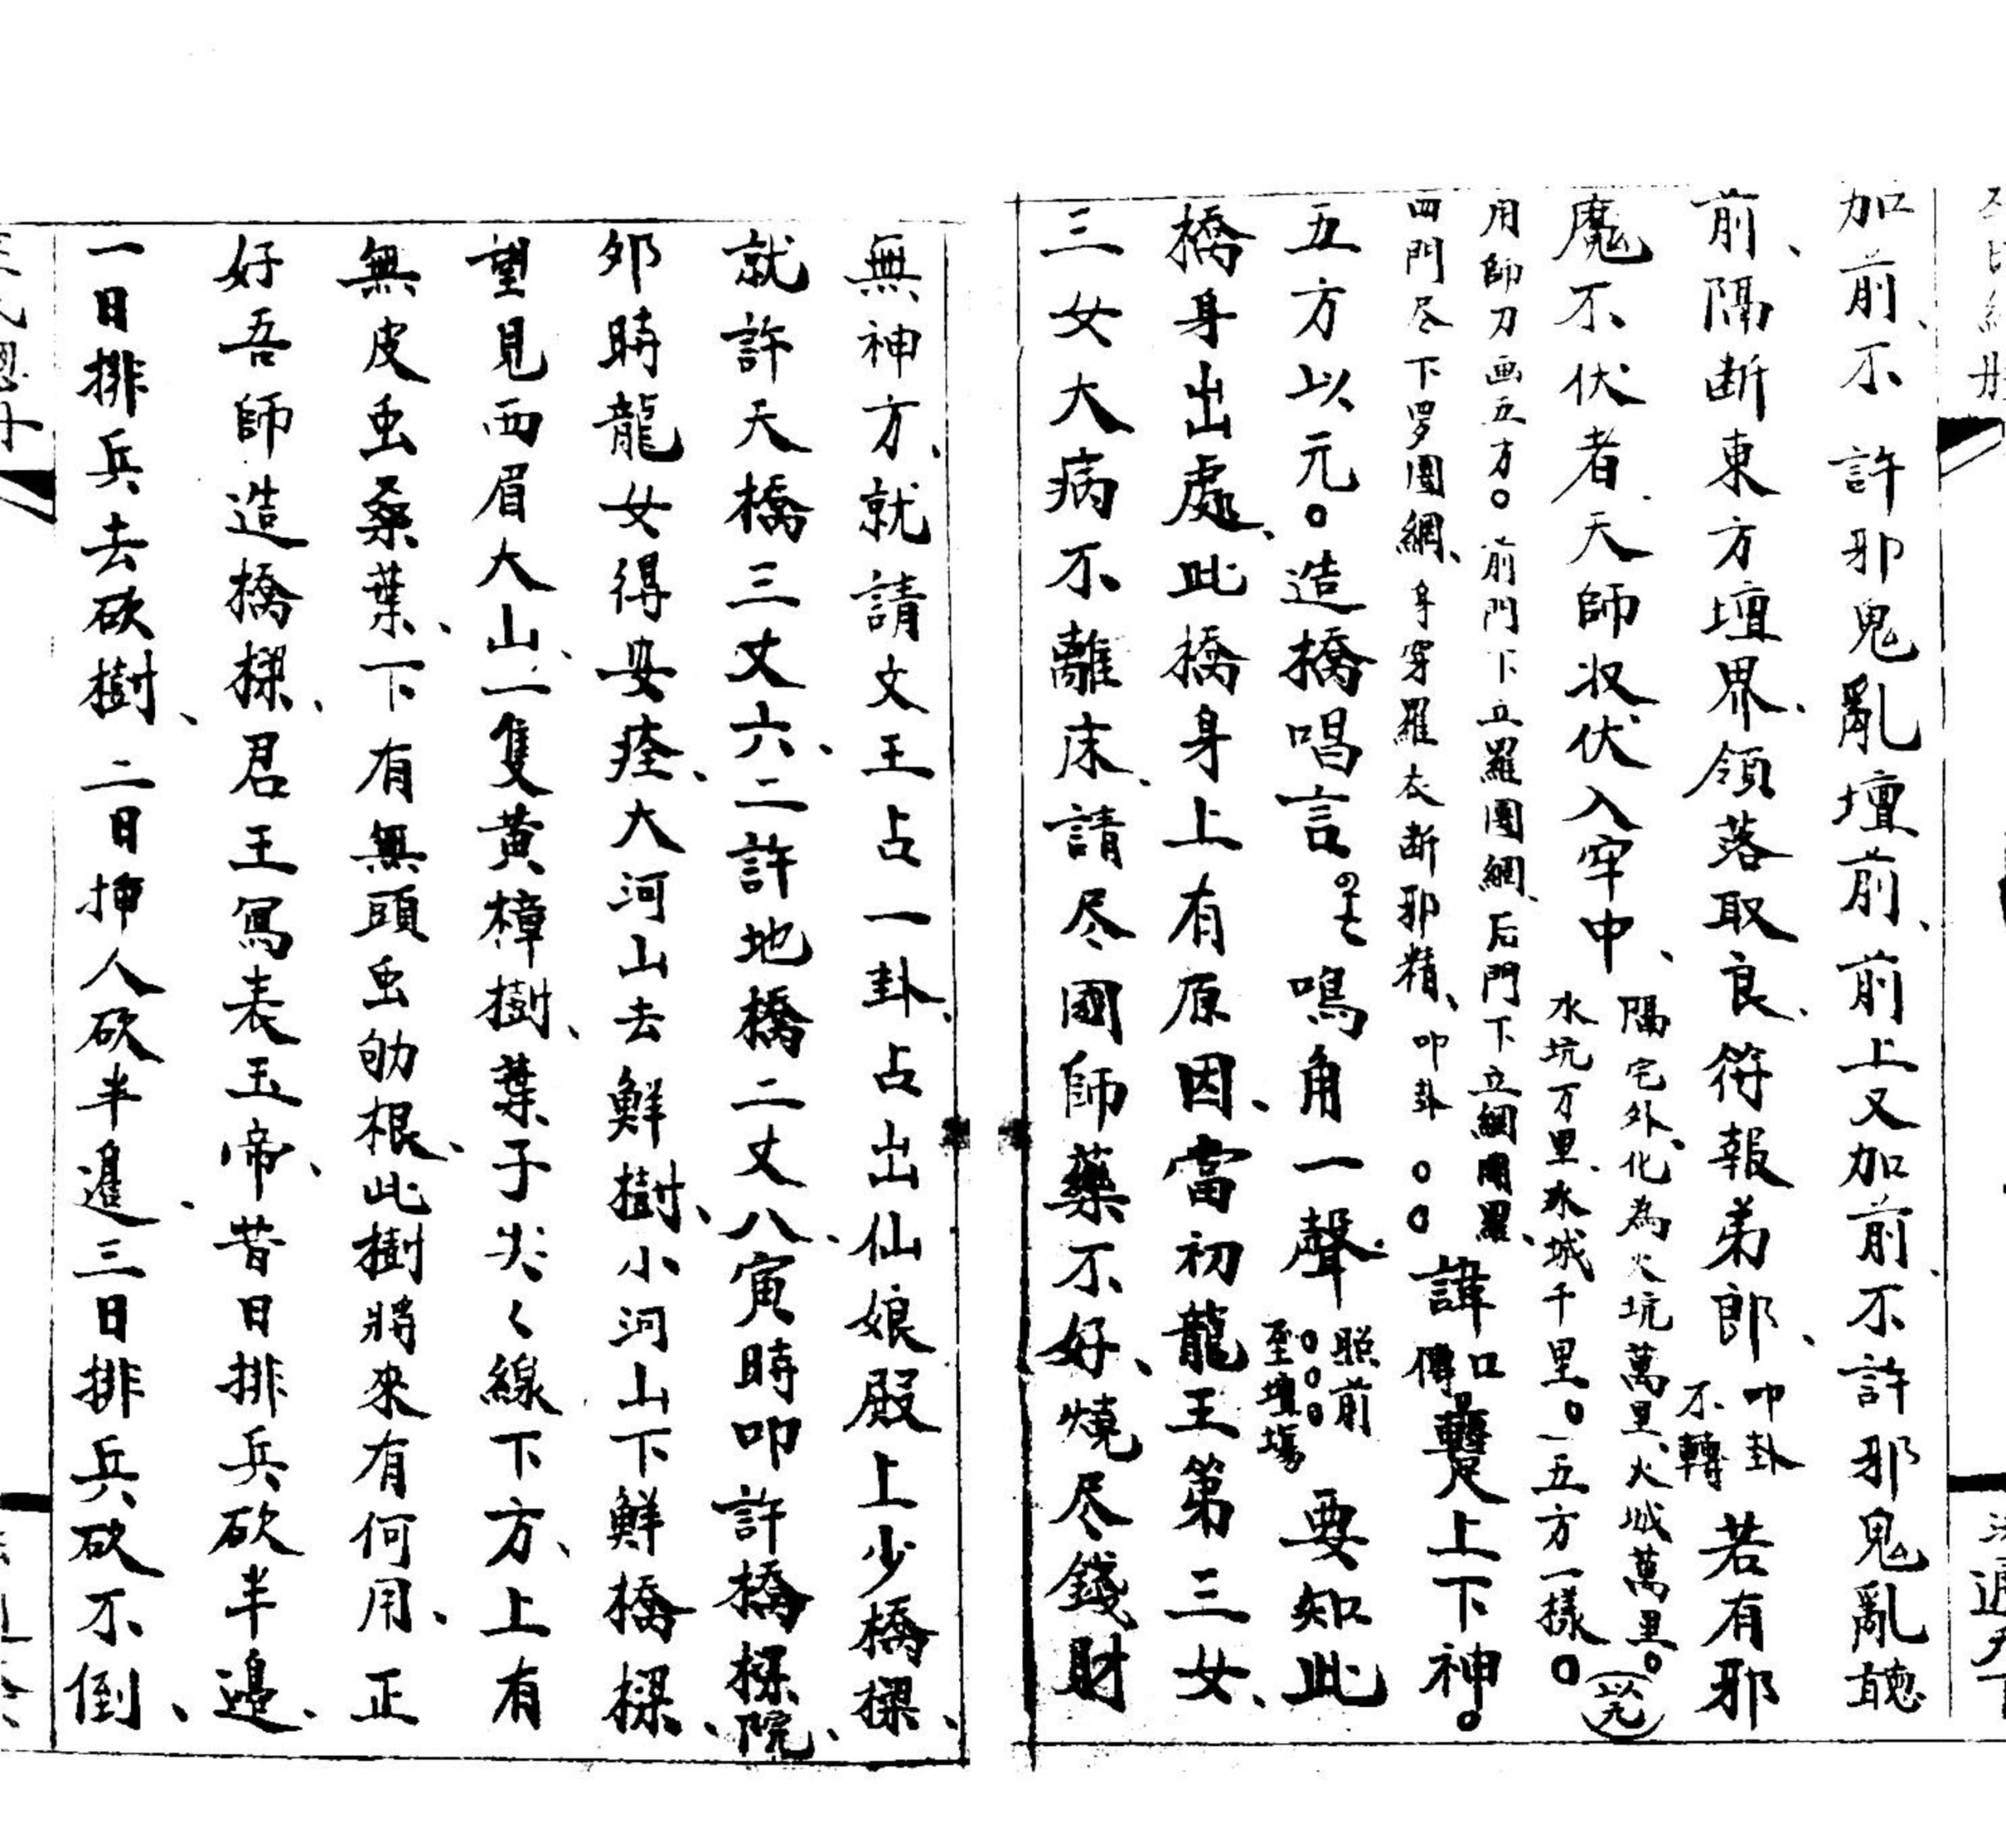 加前、不許邪鬼亂壇前、前上又加前、不許邪鬼亂聴
前、隔断東方壇界、領落取良、符報弟郎、叩卦不轉若有邪
魔不伏者、天師收伏入牢中、隔宅外、化為火坑萬里、火城萬里。水坑万里、水城千里。五方一樣。(完)
用師刀画五方。前門下立羅圍網、后門下立網圍羅、
四門尽下罗圍網、身穿羅衣断邪精、叩卦。。諱口傳躉上下神。
五方以元。造橋唱言。鳴角一聲、照前。。。至壇塲要知此
橋身出處、此橋身上有原因、當初龍王第三女、
三女大病不離床、請尽國師藥不好、燒尽錢財
無神方、就請文王占一卦、占出仙娘殿上少橋樑、
就許天橋三丈六、二許地橋二丈八、寅時叩許橋樑院、
夘時龍女得安痊、大河山去鮮樹、小河山下鮮橋樑、
望見西眉大山、一隻黃樟樹、葉子尖々線下方、上有
無皮虫桑葉、下有無頭虫劬根、此樹將來有何用、正
好吾師造橋樑、君王寫表玉帝、昔日排兵砍半邉、
一日排兵去砍樹、二日押人砍半邉、三日排兵砍不倒、